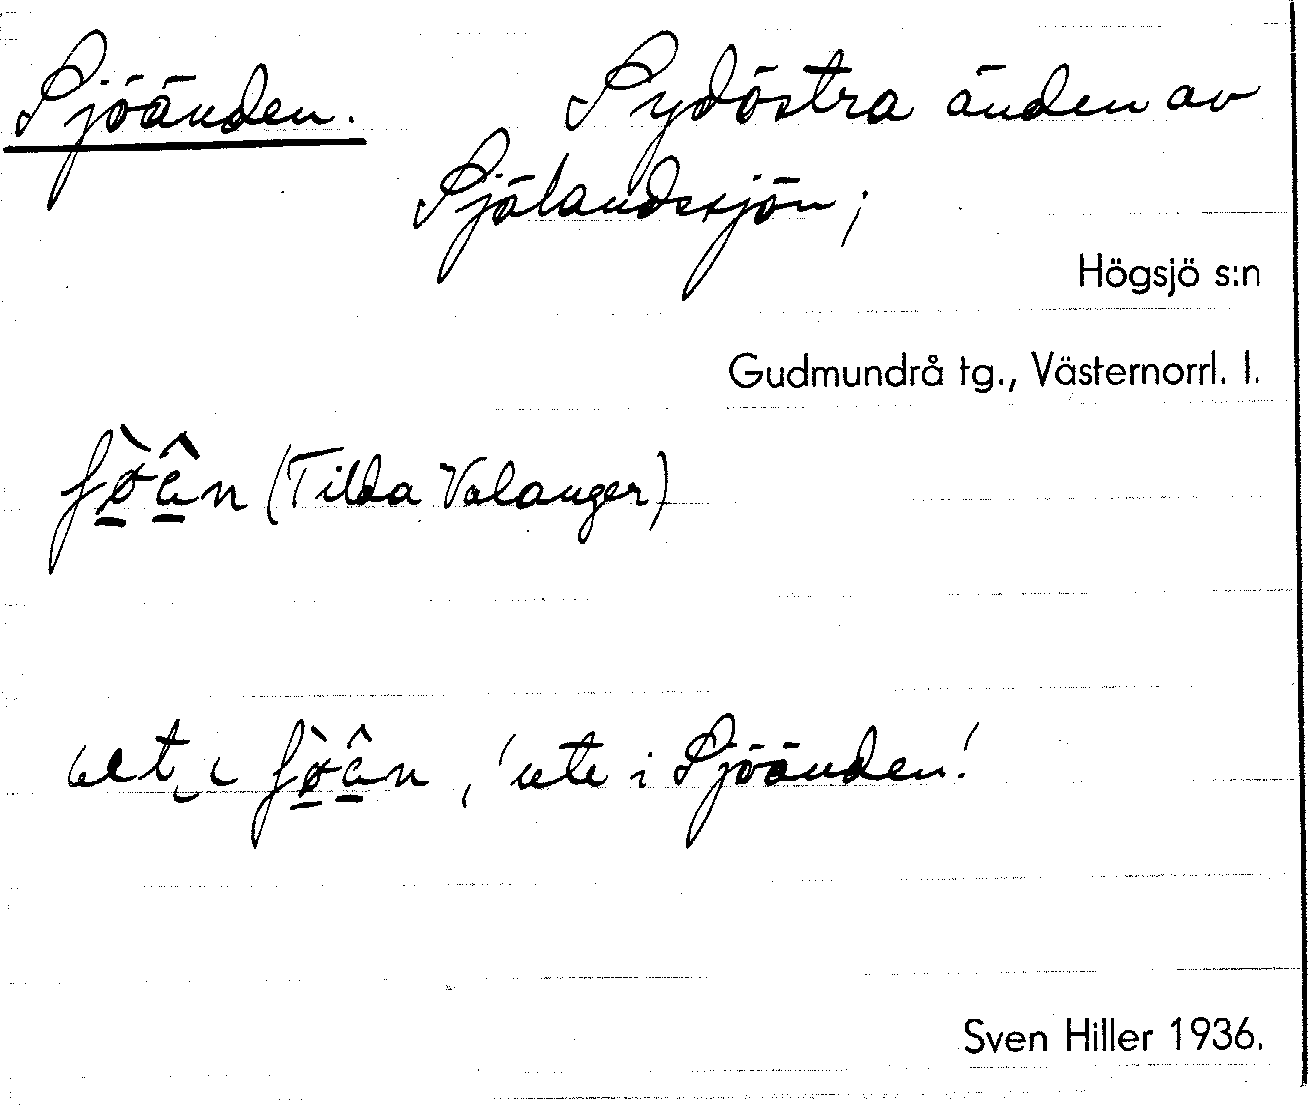 Sjöänden. Sydöstra änden av
Sjölandssjön;
Högsjö s:n
Gudmundrå tg., Västernorrl. l.
(Tilda Valanger)
'ute i Sjöänden.'
Sven Hiller 1936.